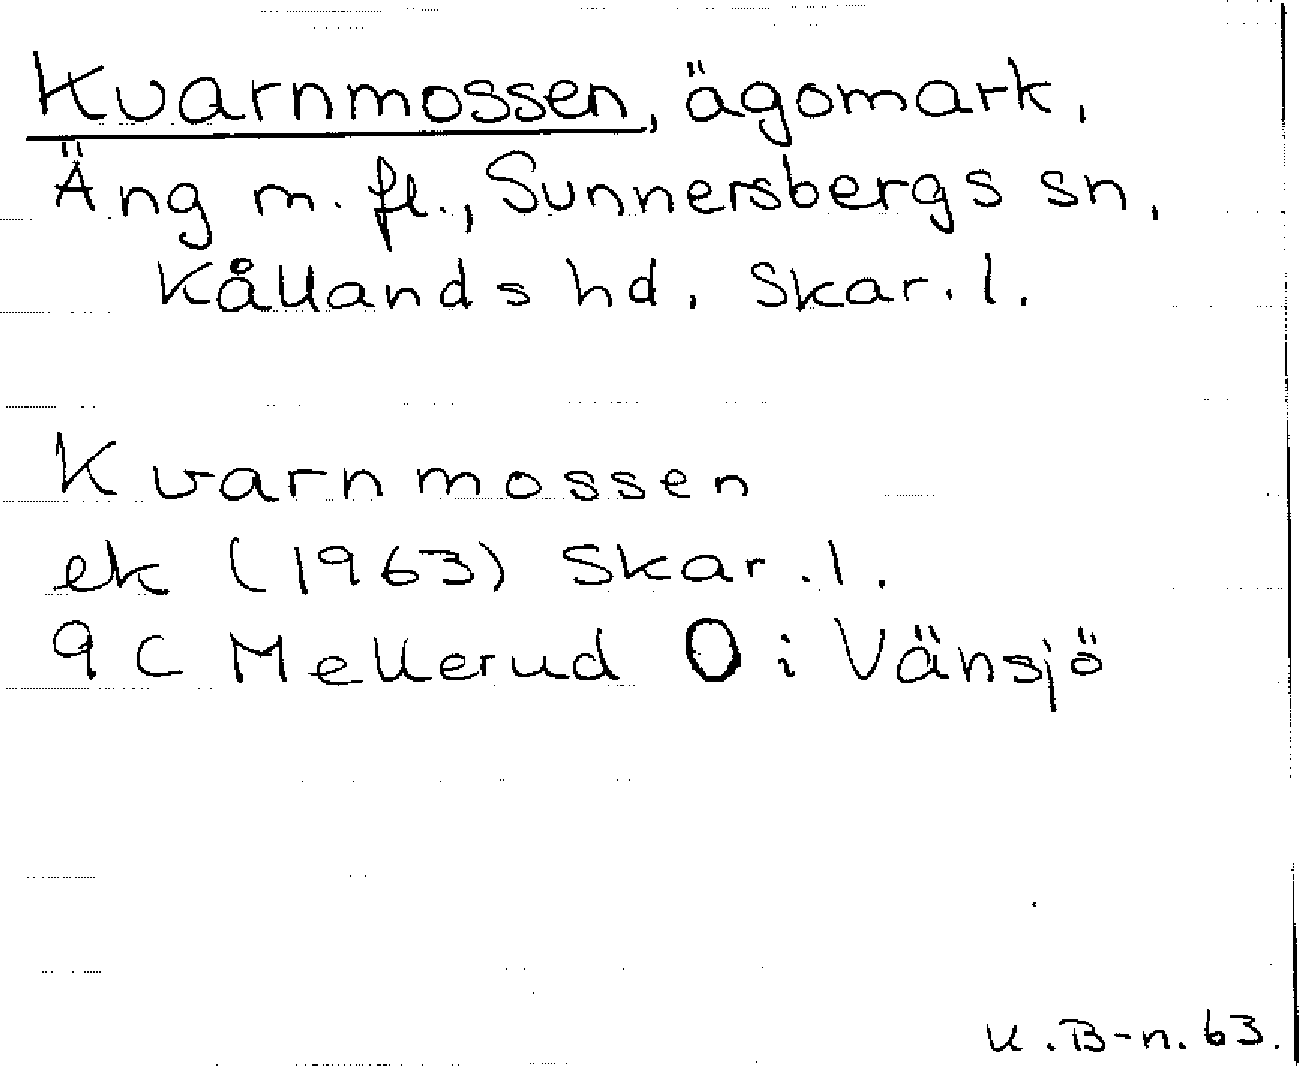 Kvarnmossen, ägomark,
Äng m. fl., Sunnersbergs sn,
Kållands hd, Skar. l.
Kvarnmossen
ek (1963) Skar. l.
9 C Mellerud O i Vänsjö
K. B-n. 63.